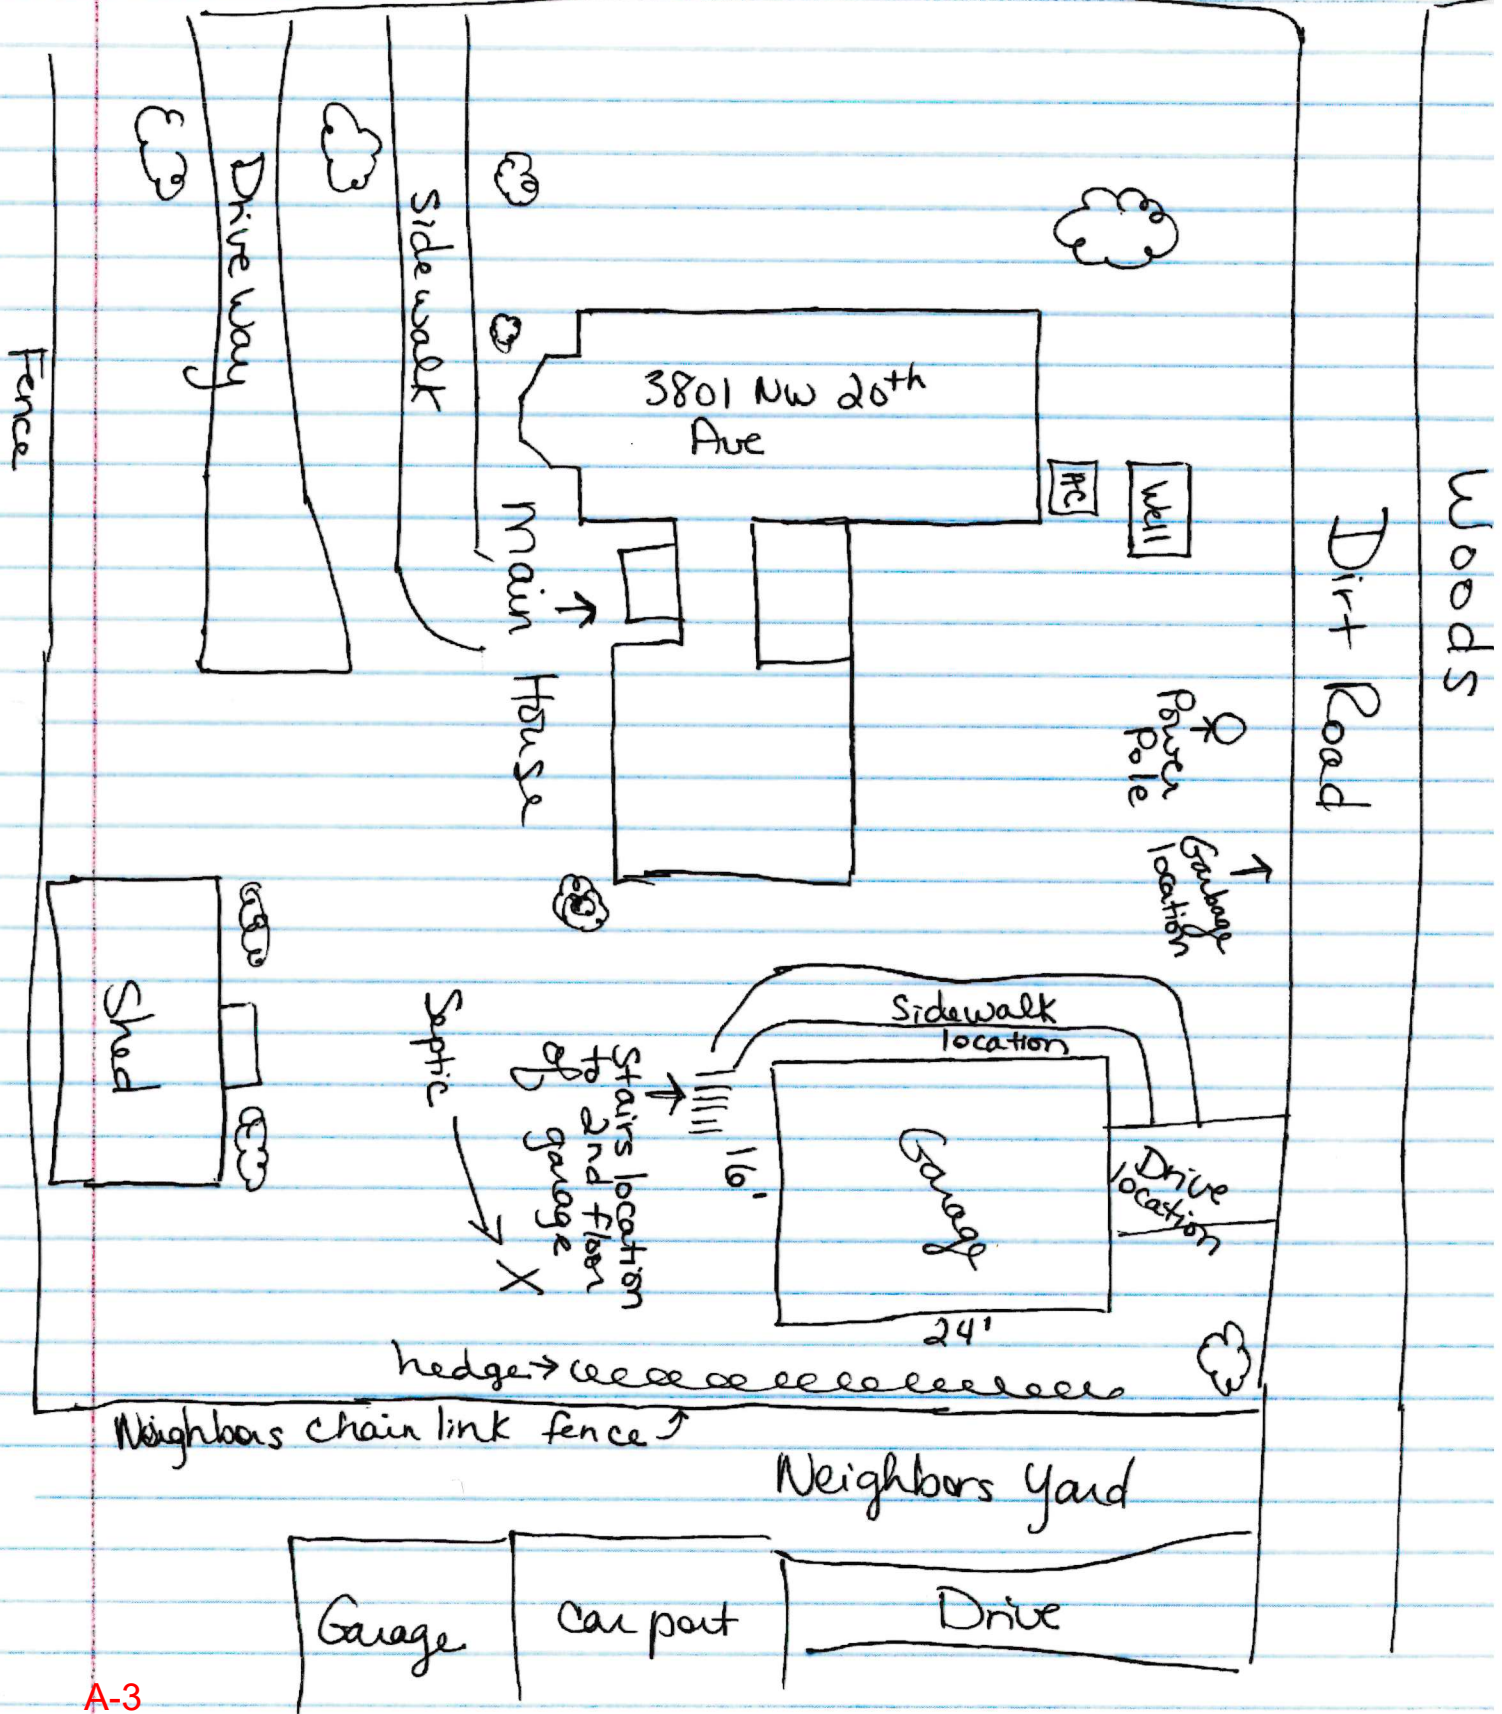 Drive way
Sidewalk
Fence
3801 NW 20th
Ave
AC
Well
Woods
Dirt Road
Main House
Power
Pole
Garbage
location
Shed
Septic
X
Stairs location
to 2nd floor
of garage
Sidewalk
location
16'
Garage
Drive
location
24'
hedge
Neighbors chain link fence
Neighbors Yard
Garage
Car port
Drive
A-3